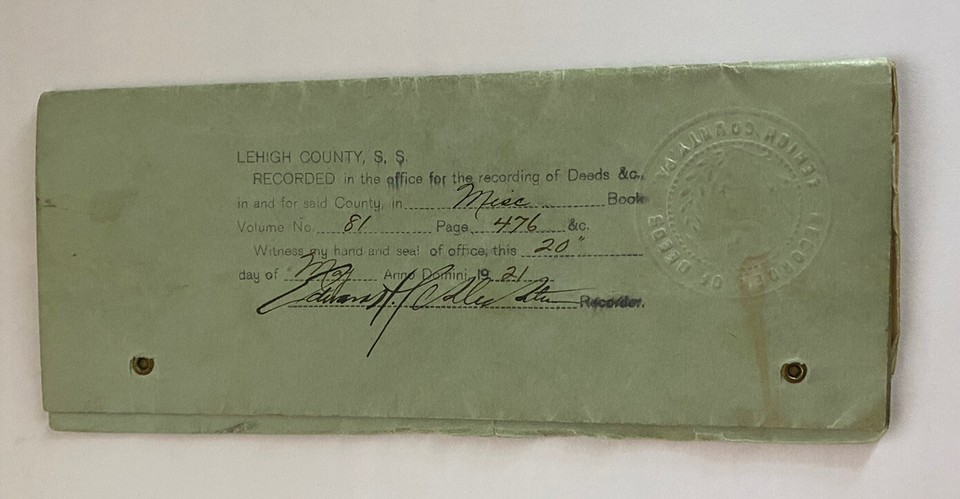 LEHIGH COUNTY, S. S.
RECORDED in the office for the recording of Deeds &c.,
in and for said County, in Misc Book
Volume No. 81 Page 476 &c.
Witness my hand and seal of office, this 20"
day of May Anno Domini, 19 21
Edward H. Recorder.
RECORDER OF DEEDS
LEHIGH COUNTY PA